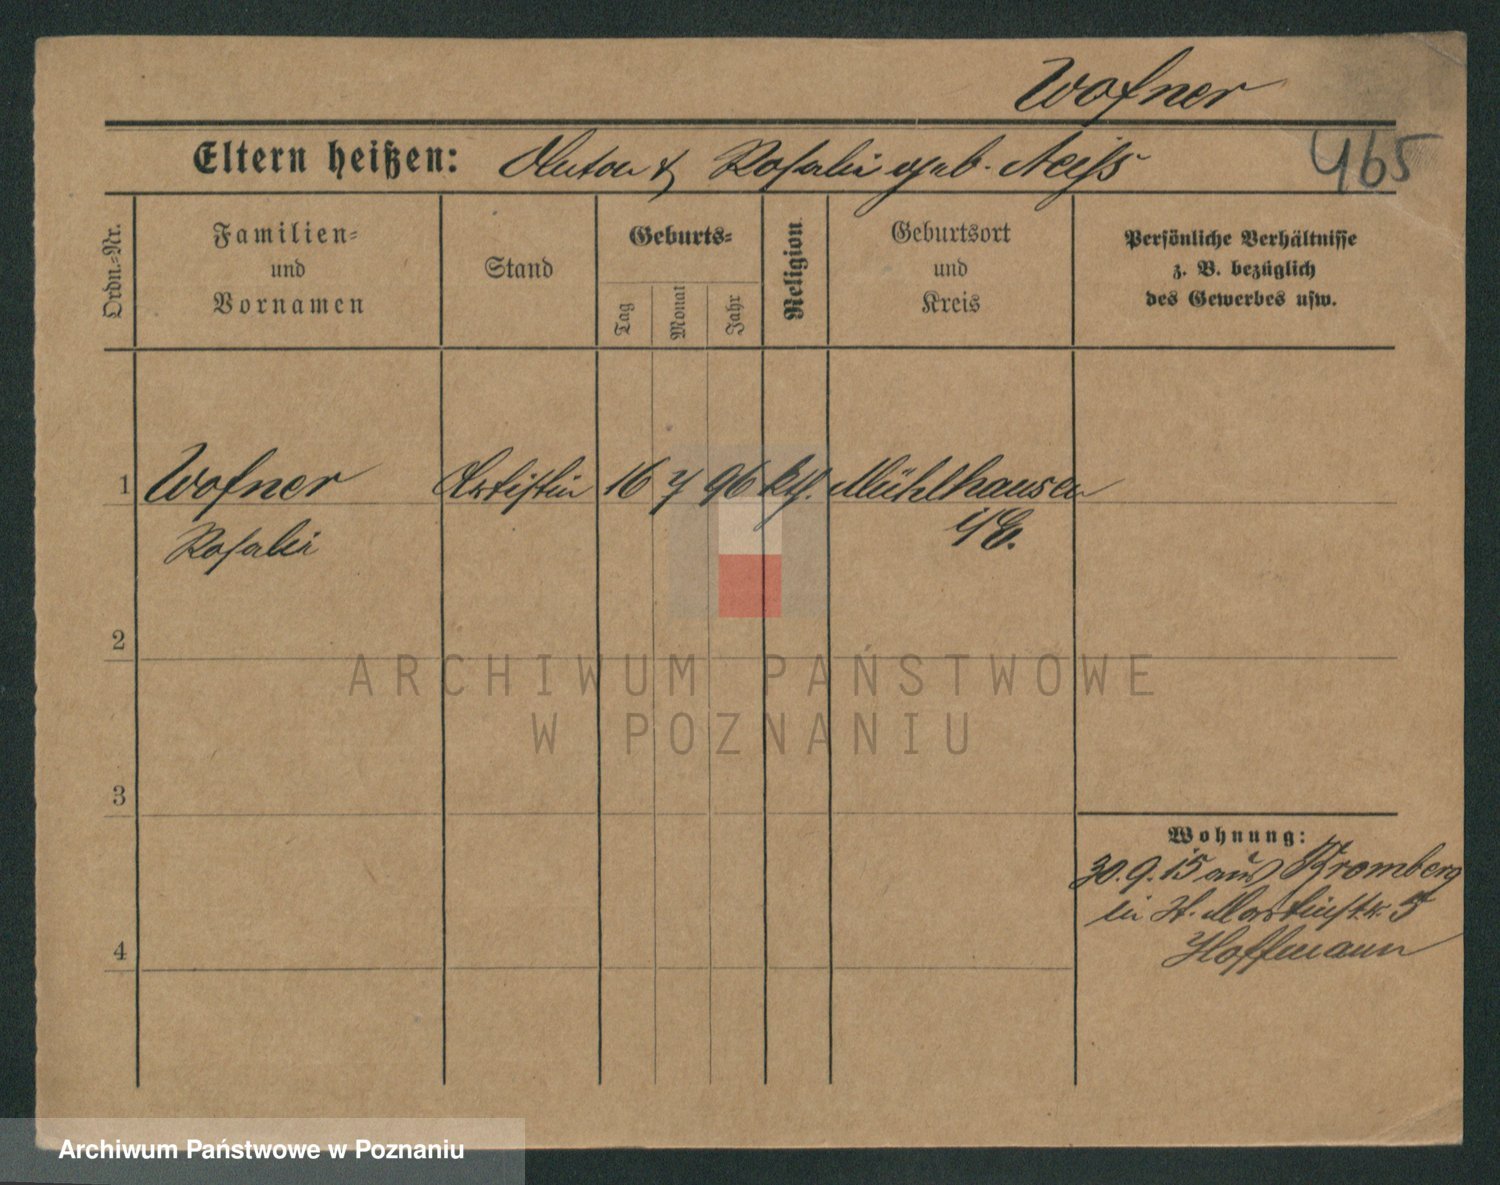 Wofner
465
Eltern heißen: Anton & Rosalie geb. Neiss
Ordn.-Nr.
Familien-
und
Vornamen
Stand
Geburts-
Tag
Monat
Jahr
Religion
Geburtsort
und
Kreis
Persönliche Verhältnisse
z. B. bezüglich
des Gewerbes usw.
1 Wofner Artistin 16 7 96 kth. Mühlhausen
Rosalie i/E.
2
ARCHIWUM PAŃSTWOWE
W POZNANIU
3
Wohnung:
30.9.15 aus Bromberg
in St. Martinstr. 5
Hoffmann
4
Archiwum Państwowe w Poznaniu